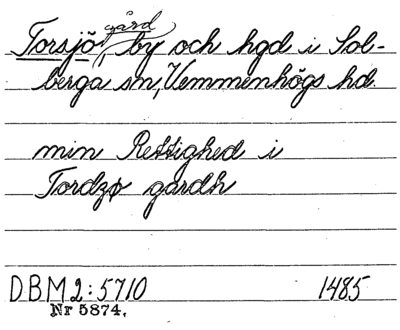 Torsjö, gård, by och hgd i Sol-
berga sn, Vemmenhögs hd.
min Rettighed i
Tordzø gardh
D.B.M 2:5710 1485
Nr 5874.